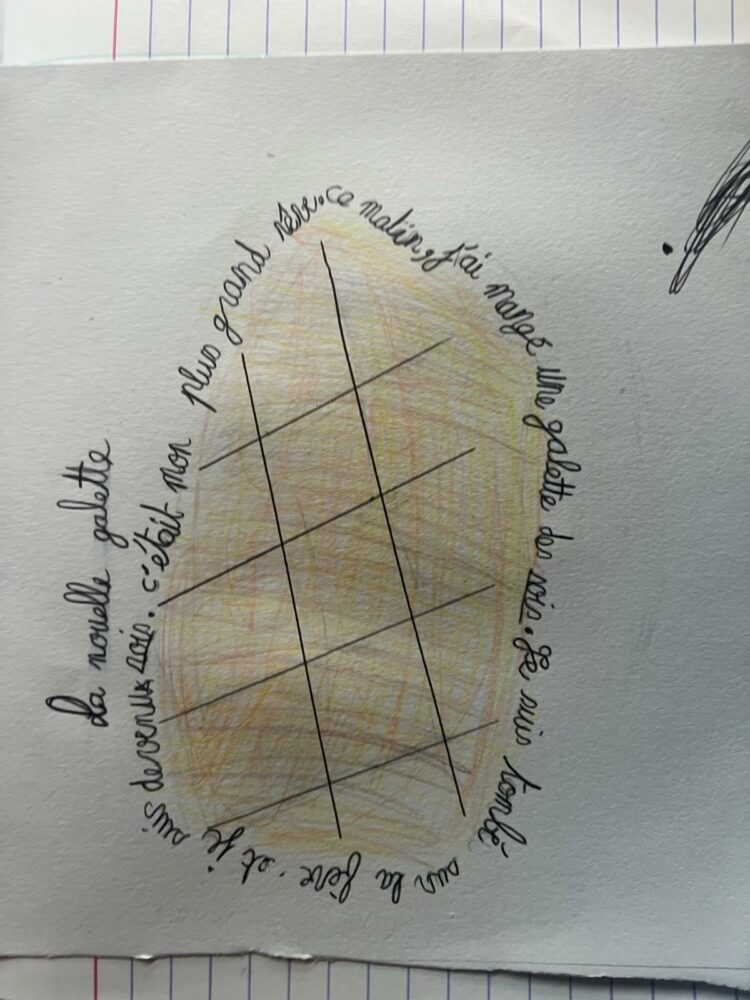 La nouelle galette
ce matin, j'ai mangé une galette des rois. Je suis tombé sur la fève. et je suis devenus rois. c'était mon plus grand rêve.